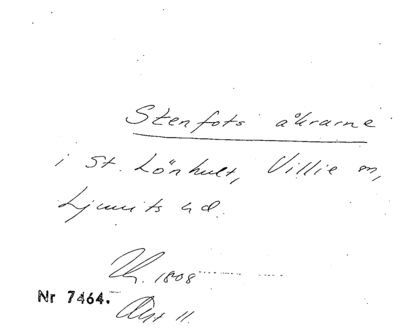 Stenfots åkrarne
i St. Lönhult, Villie sn,
Ljunits hd.
1808
Nr 7464.
Akt 11.